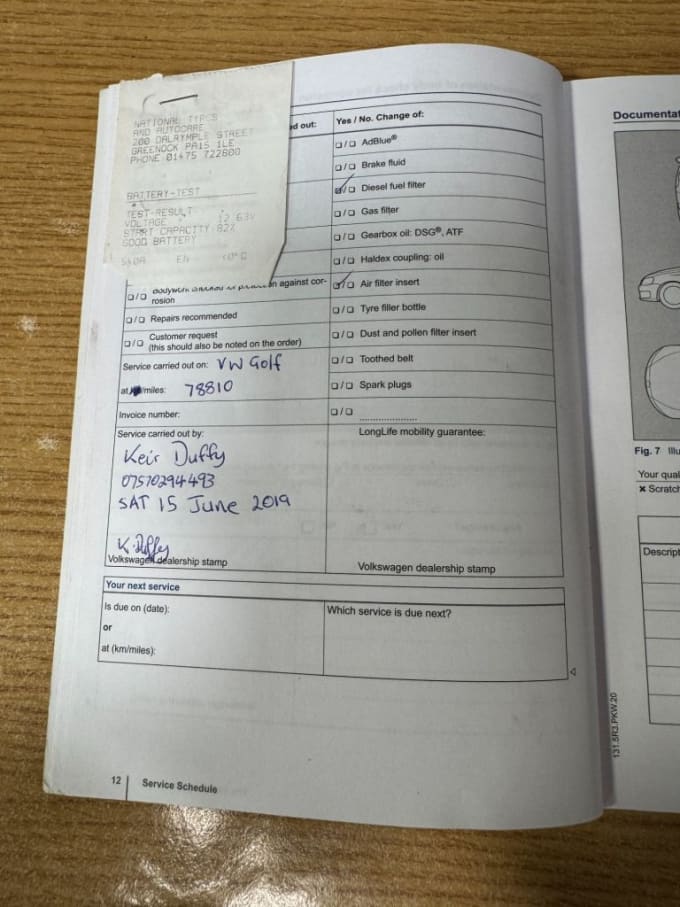 NATIONAL TYRES
AND AUTOCARE
200 DALRYMPLE STREET
GREENOCK PA15 1LE
PHONE 01475 722800
BATTERY-TEST
TEST-RESULT
VOLTAGE 12.63V
START CAPACITY:82%
GOOD BATTERY
540A EN <0°C
ed out:
against cor-
rosion
❑/❑ Repairs recommended
❑/❑ Customer request
(this should also be noted on the order)
Service carried out on: VW Golf
at /miles: 78810
Invoice number:
Service carried out by:
Keir Duffy
07570294493
SAT 15 June 2019
K.Duffy
Volkswagen dealership stamp
Yes / No. Change of:
❑/❑ AdBlue®
❑/❑ Brake fluid
❑/❑ Diesel fuel filter
❑/❑ Gas filter
❑/❑ Gearbox oil: DSG®, ATF
❑/❑ Haldex coupling: oil
❑/❑ Air filter insert
❑/❑ Tyre filler bottle
❑/❑ Dust and pollen filter insert
❑/❑ Toothed belt
❑/❑ Spark plugs
❑/❑ ....................
LongLife mobility guarantee:
Volkswagen dealership stamp
Your next service
Is due on (date):
or
at (km/miles):
Which service is due next?
12 Service Schedule
Documentat
Fig. 7 Illu
Your qual
× Scratch
Descript
131.5R3.PKW.20